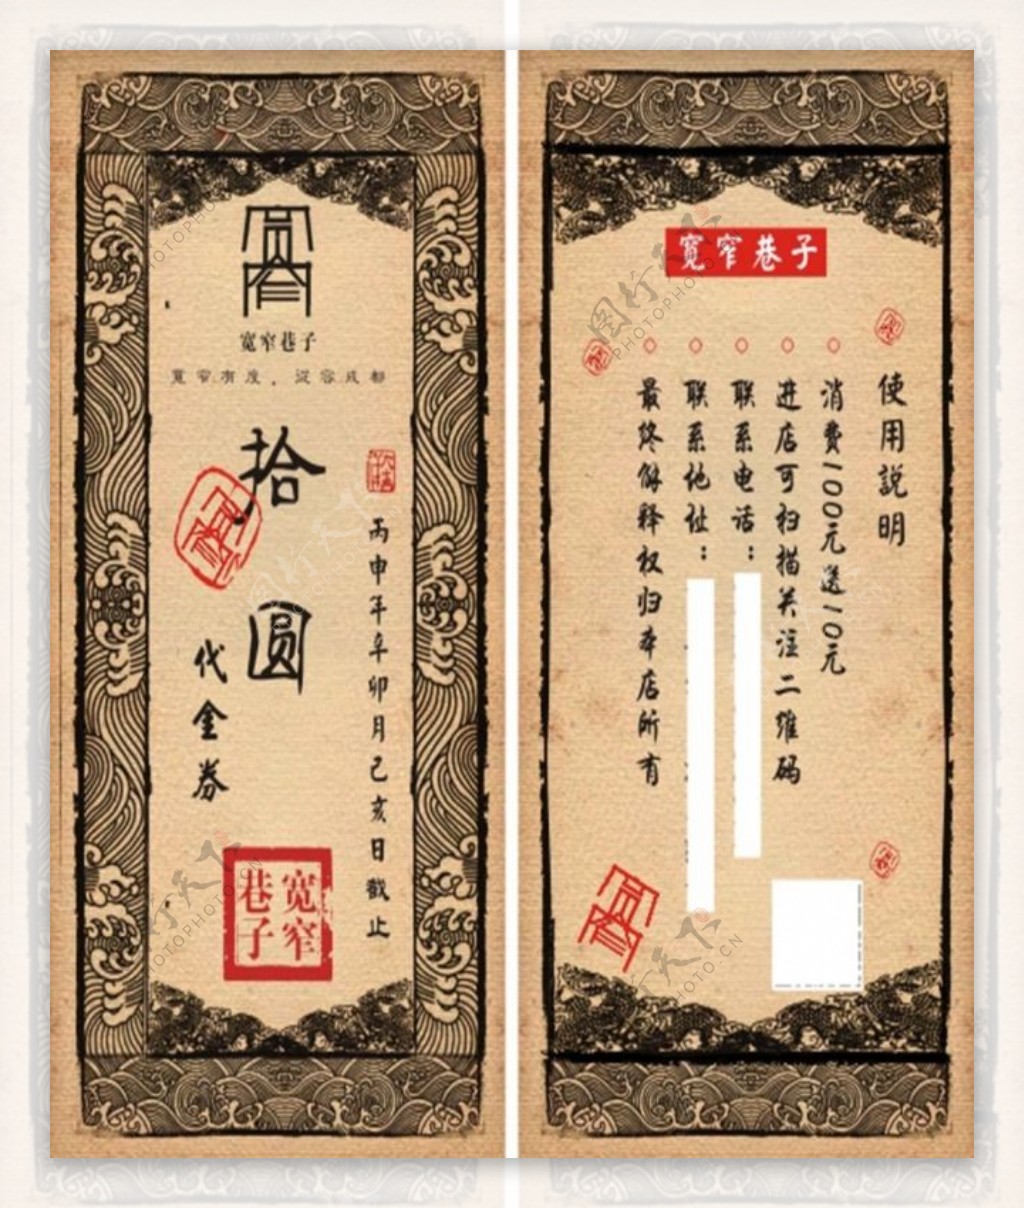 宽窄巷子
宽窄有度，从容成都
拾圆
代金券
丙申年辛卯月己亥日截止
宽窄
巷子
寬窄巷子
使用説明
消费100元送10元
进店可扫描关注二维码
联系电话：
联系地址：
最终解释权归本店所有